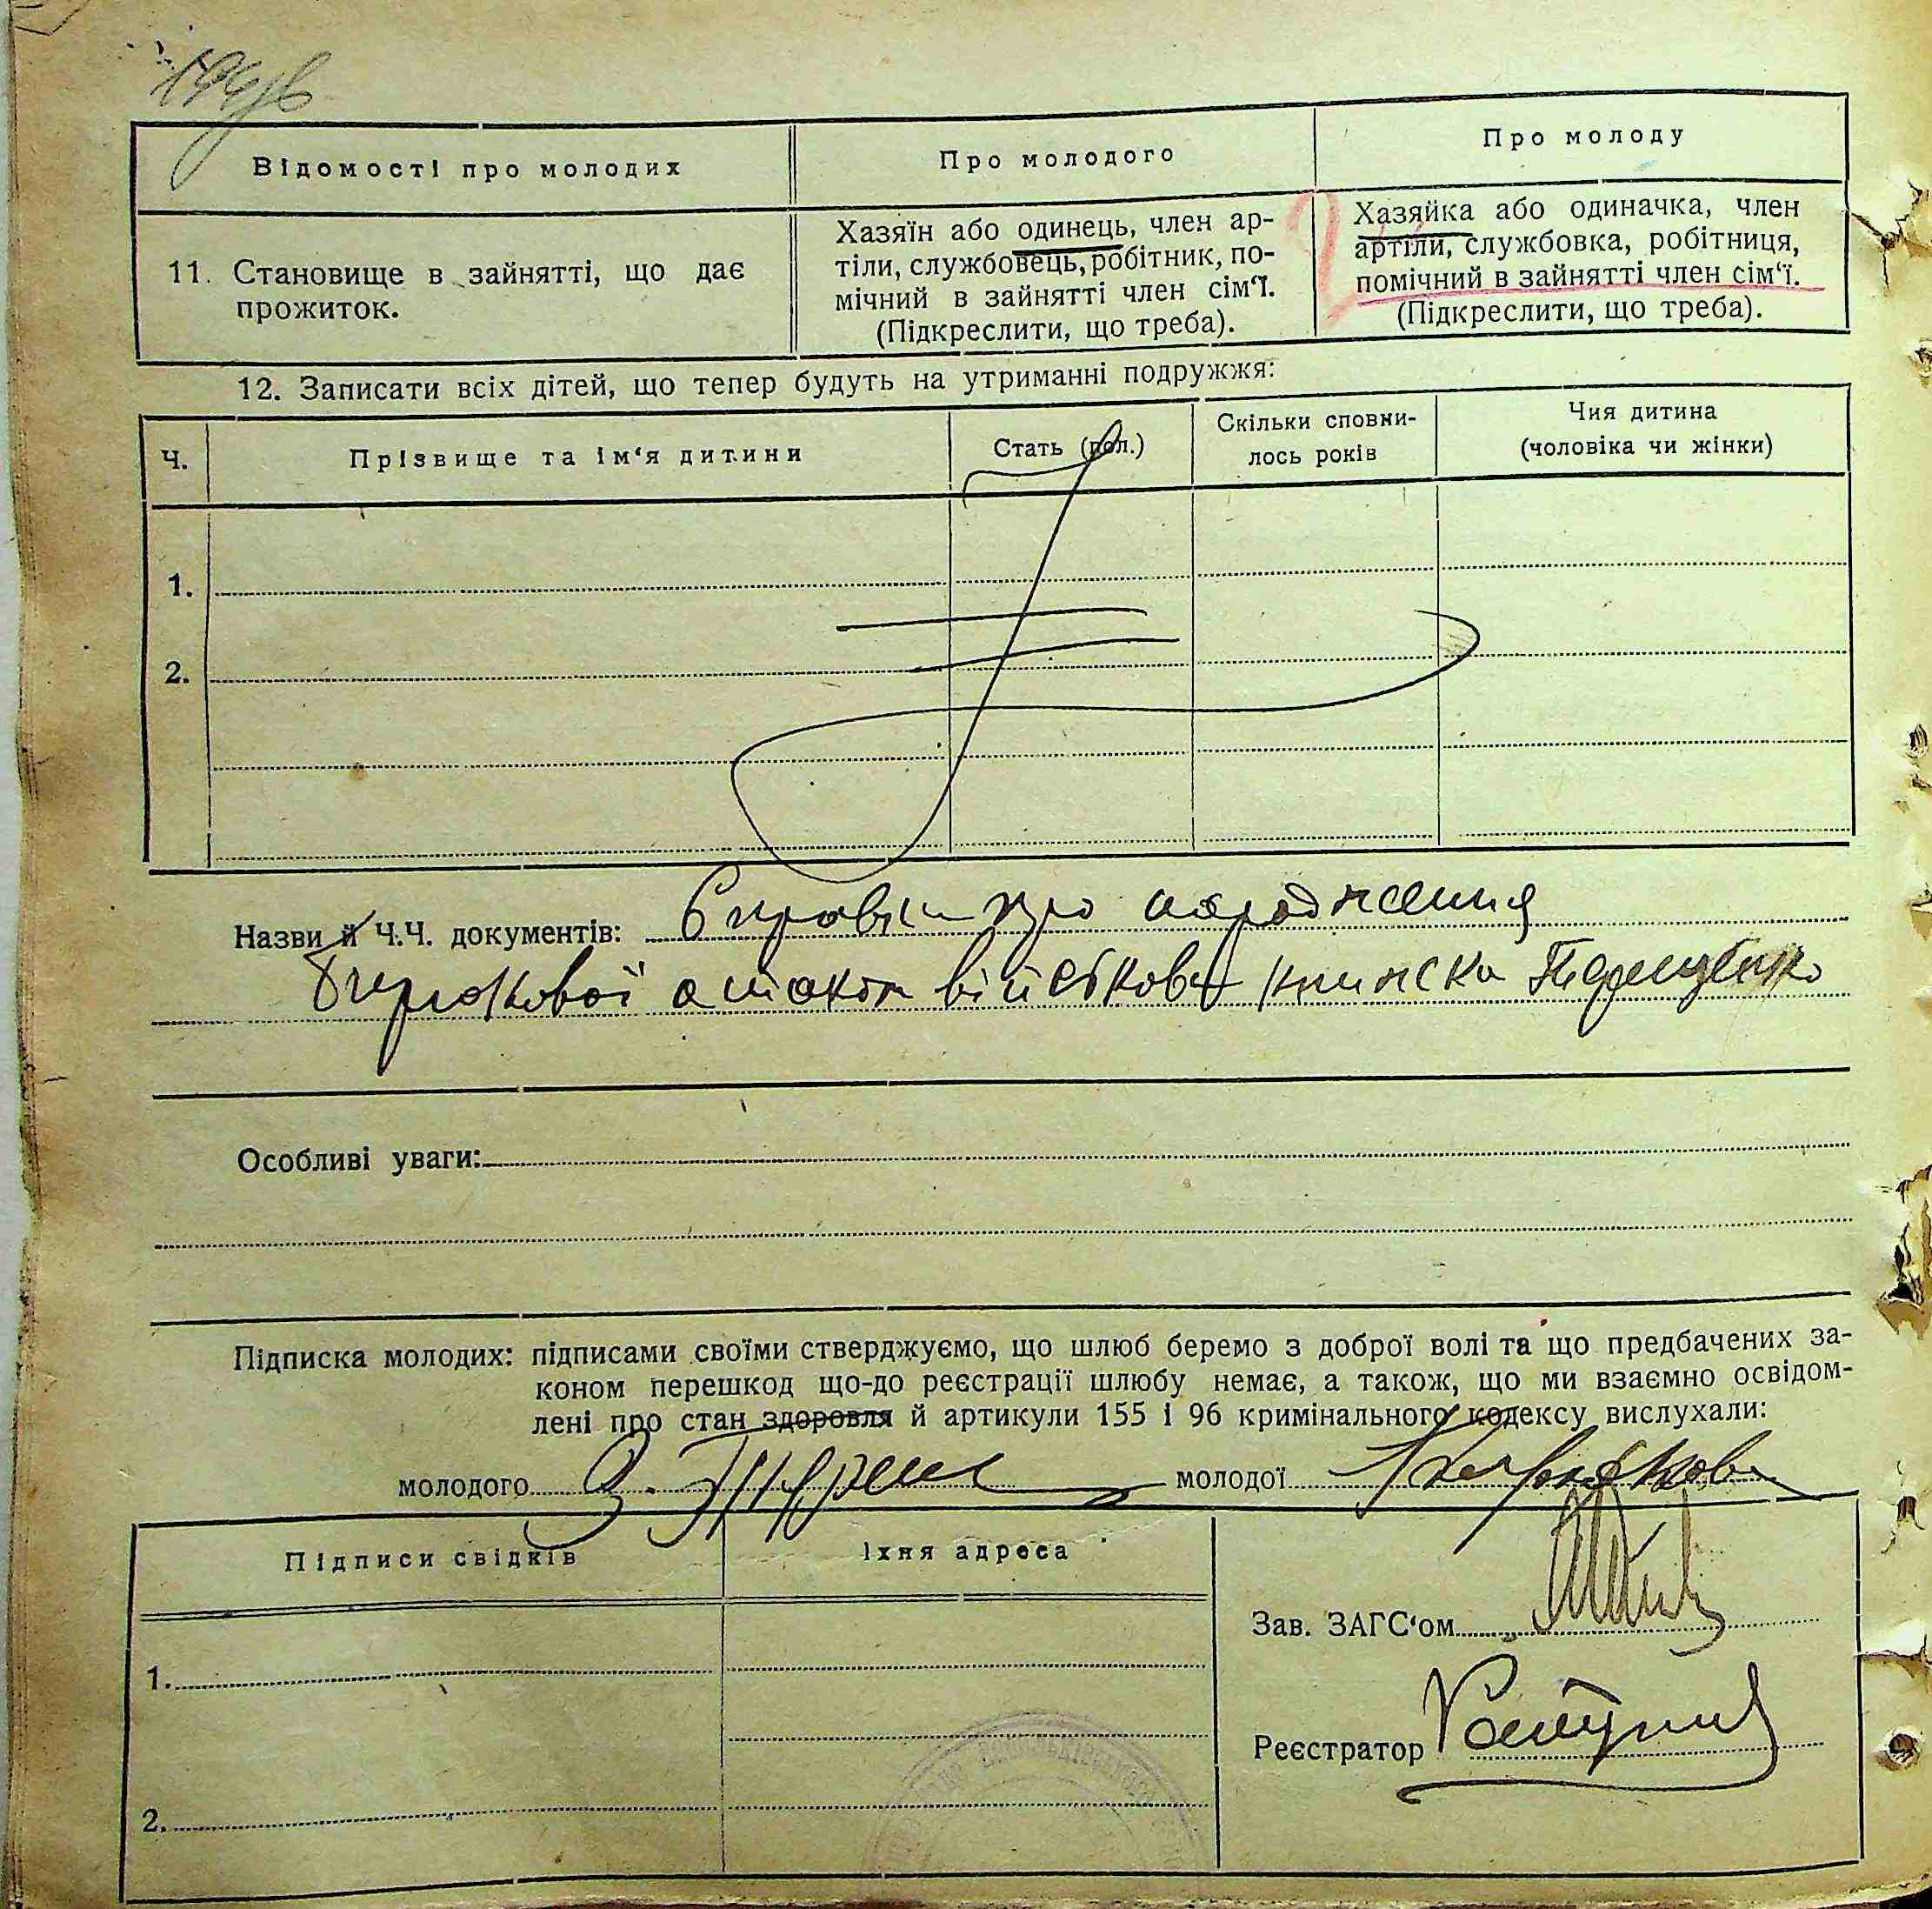 Відомості про молодих
Про молодого
Про молоду
11. Становище в зайнятті, що дає
прожиток.
Хазяїн або одинець, член ар-
тіли, службовець, робітник, по-
мічний в зайнятті член сім‘ї.
(Підкреслити, що треба).
Хазяйка або одиначка, член
артіли, службовка, робітниця,
помічний в зайнятті член сім‘ї.
(Підкреслити, що треба).
12. Записати всіх дітей, що тепер будуть на утриманні подружжя:
Ч.
Прізвище та ім‘я дитини
Стать (пол.)
Скільки сповни-
лось років
Чия дитина
(чоловіка чи жінки)
1.
2.
Назви й Ч.Ч. документів: Справки про народження
а також військова книжка Терещенко
Особливі уваги:
Підписка молодих: підписами своїми стверджуємо, що шлюб беремо з доброї волі та що предбачених за-
коном перешкод що-до реєстрації шлюбу немає, а також, що ми взаємно освідом-
лені про стан здоровля й артикули 155 і 96 кримінального кодексу вислухали:
молодого
молодої
Підписи свідків
Їхня адреса
1.
2.
Зав. ЗАГС‘ом
Реєстратор